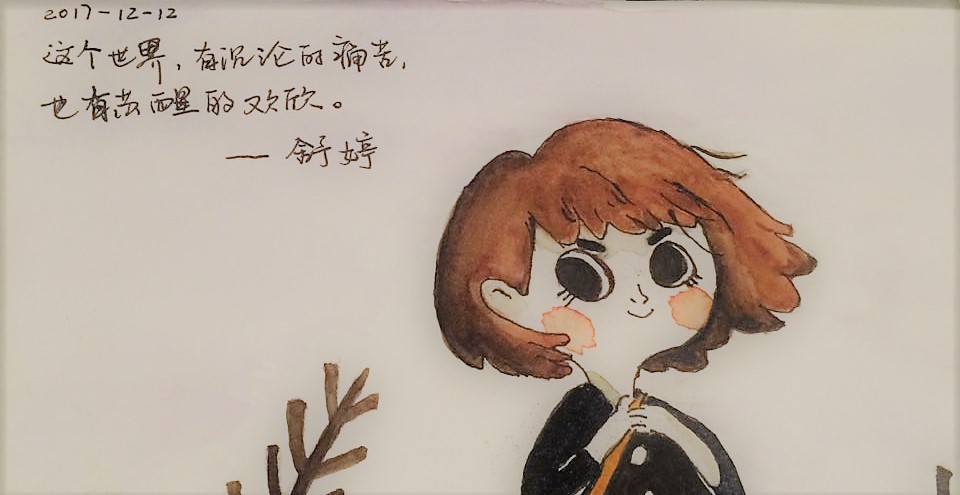 2017-12-12
这个世界,有沉沦的痛苦,
也有苏醒的欢欣。
— 舒婷